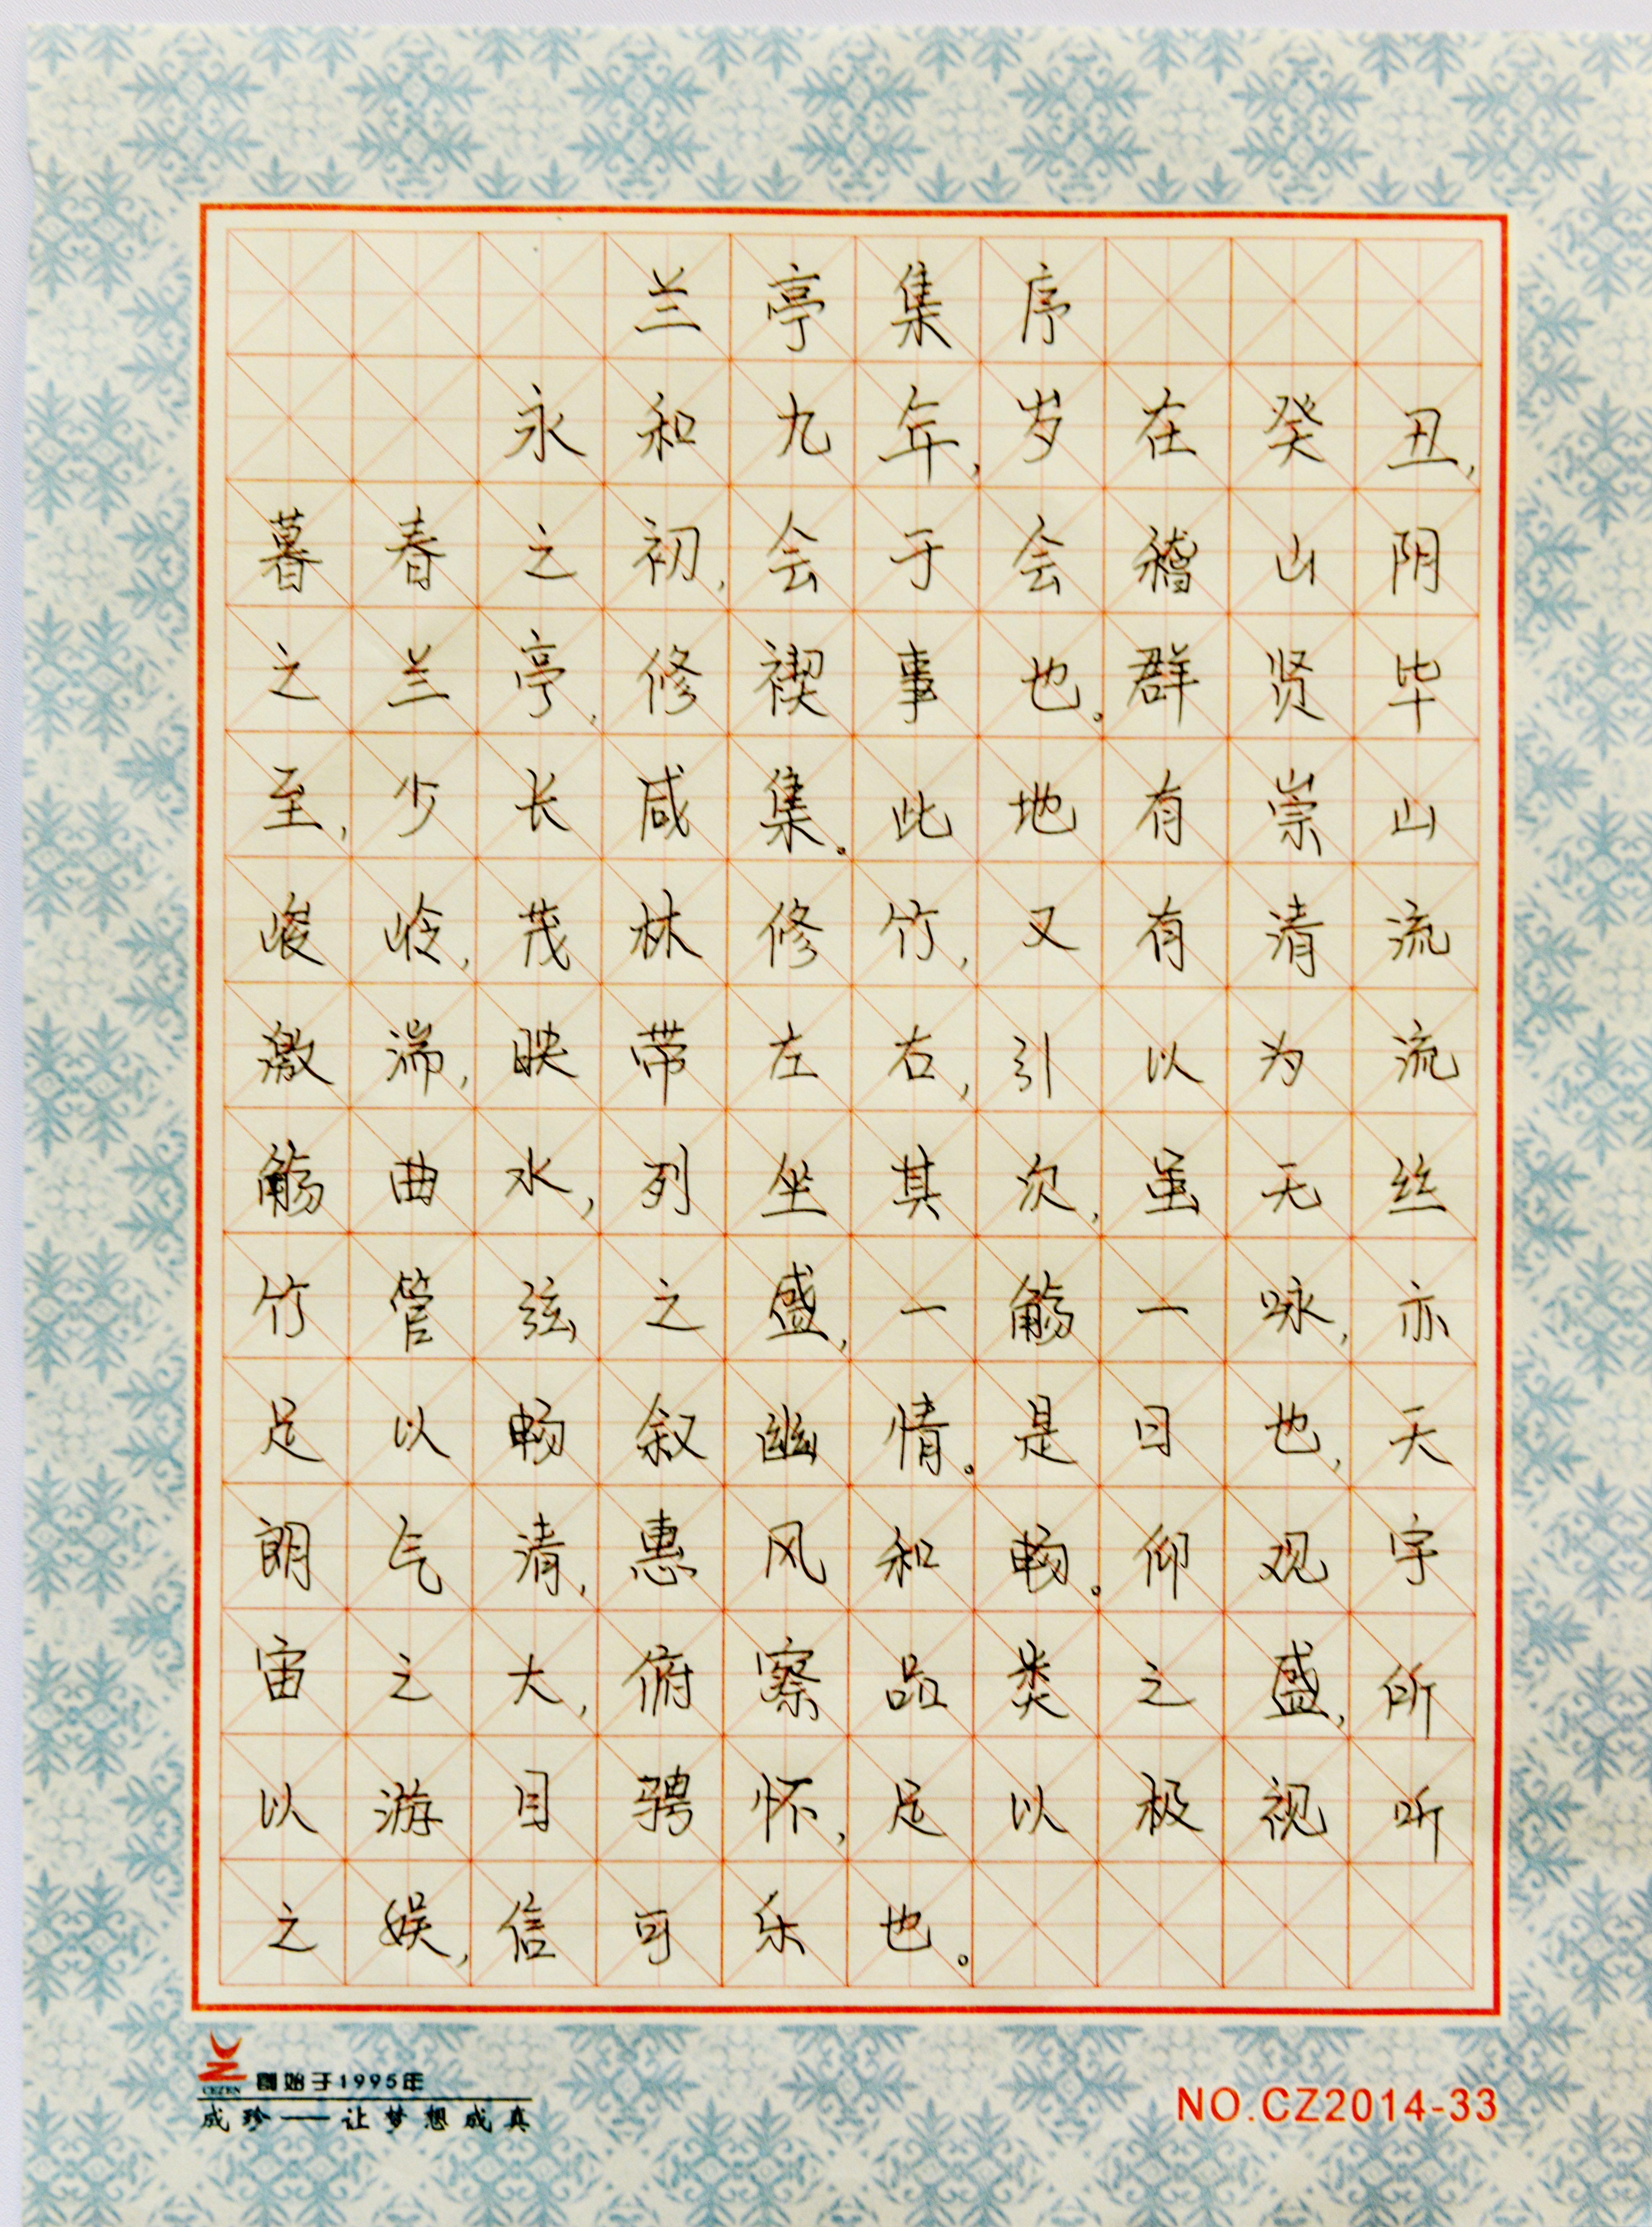 兰亭集序
永和九年,岁在癸丑,
暮春之初,会于会稽山阴
之兰亭,修禊事也。群贤毕
至,少长咸集。此地有崇山
峻岭,茂林修竹,又有清流
激湍,映带左右,引以为流
觞曲水,列坐其次,虽无丝
竹管弦之盛,一觞一咏,亦
足以畅叙幽情。是日也,天
朗气清,惠风和畅。仰观宇
宙之大,俯察品类之盛,所
以游目骋怀,足以极视听
之娱,信可乐也。
CEZEN 創始于1995年
成珍——让梦想成真
NO.CZ2014-33